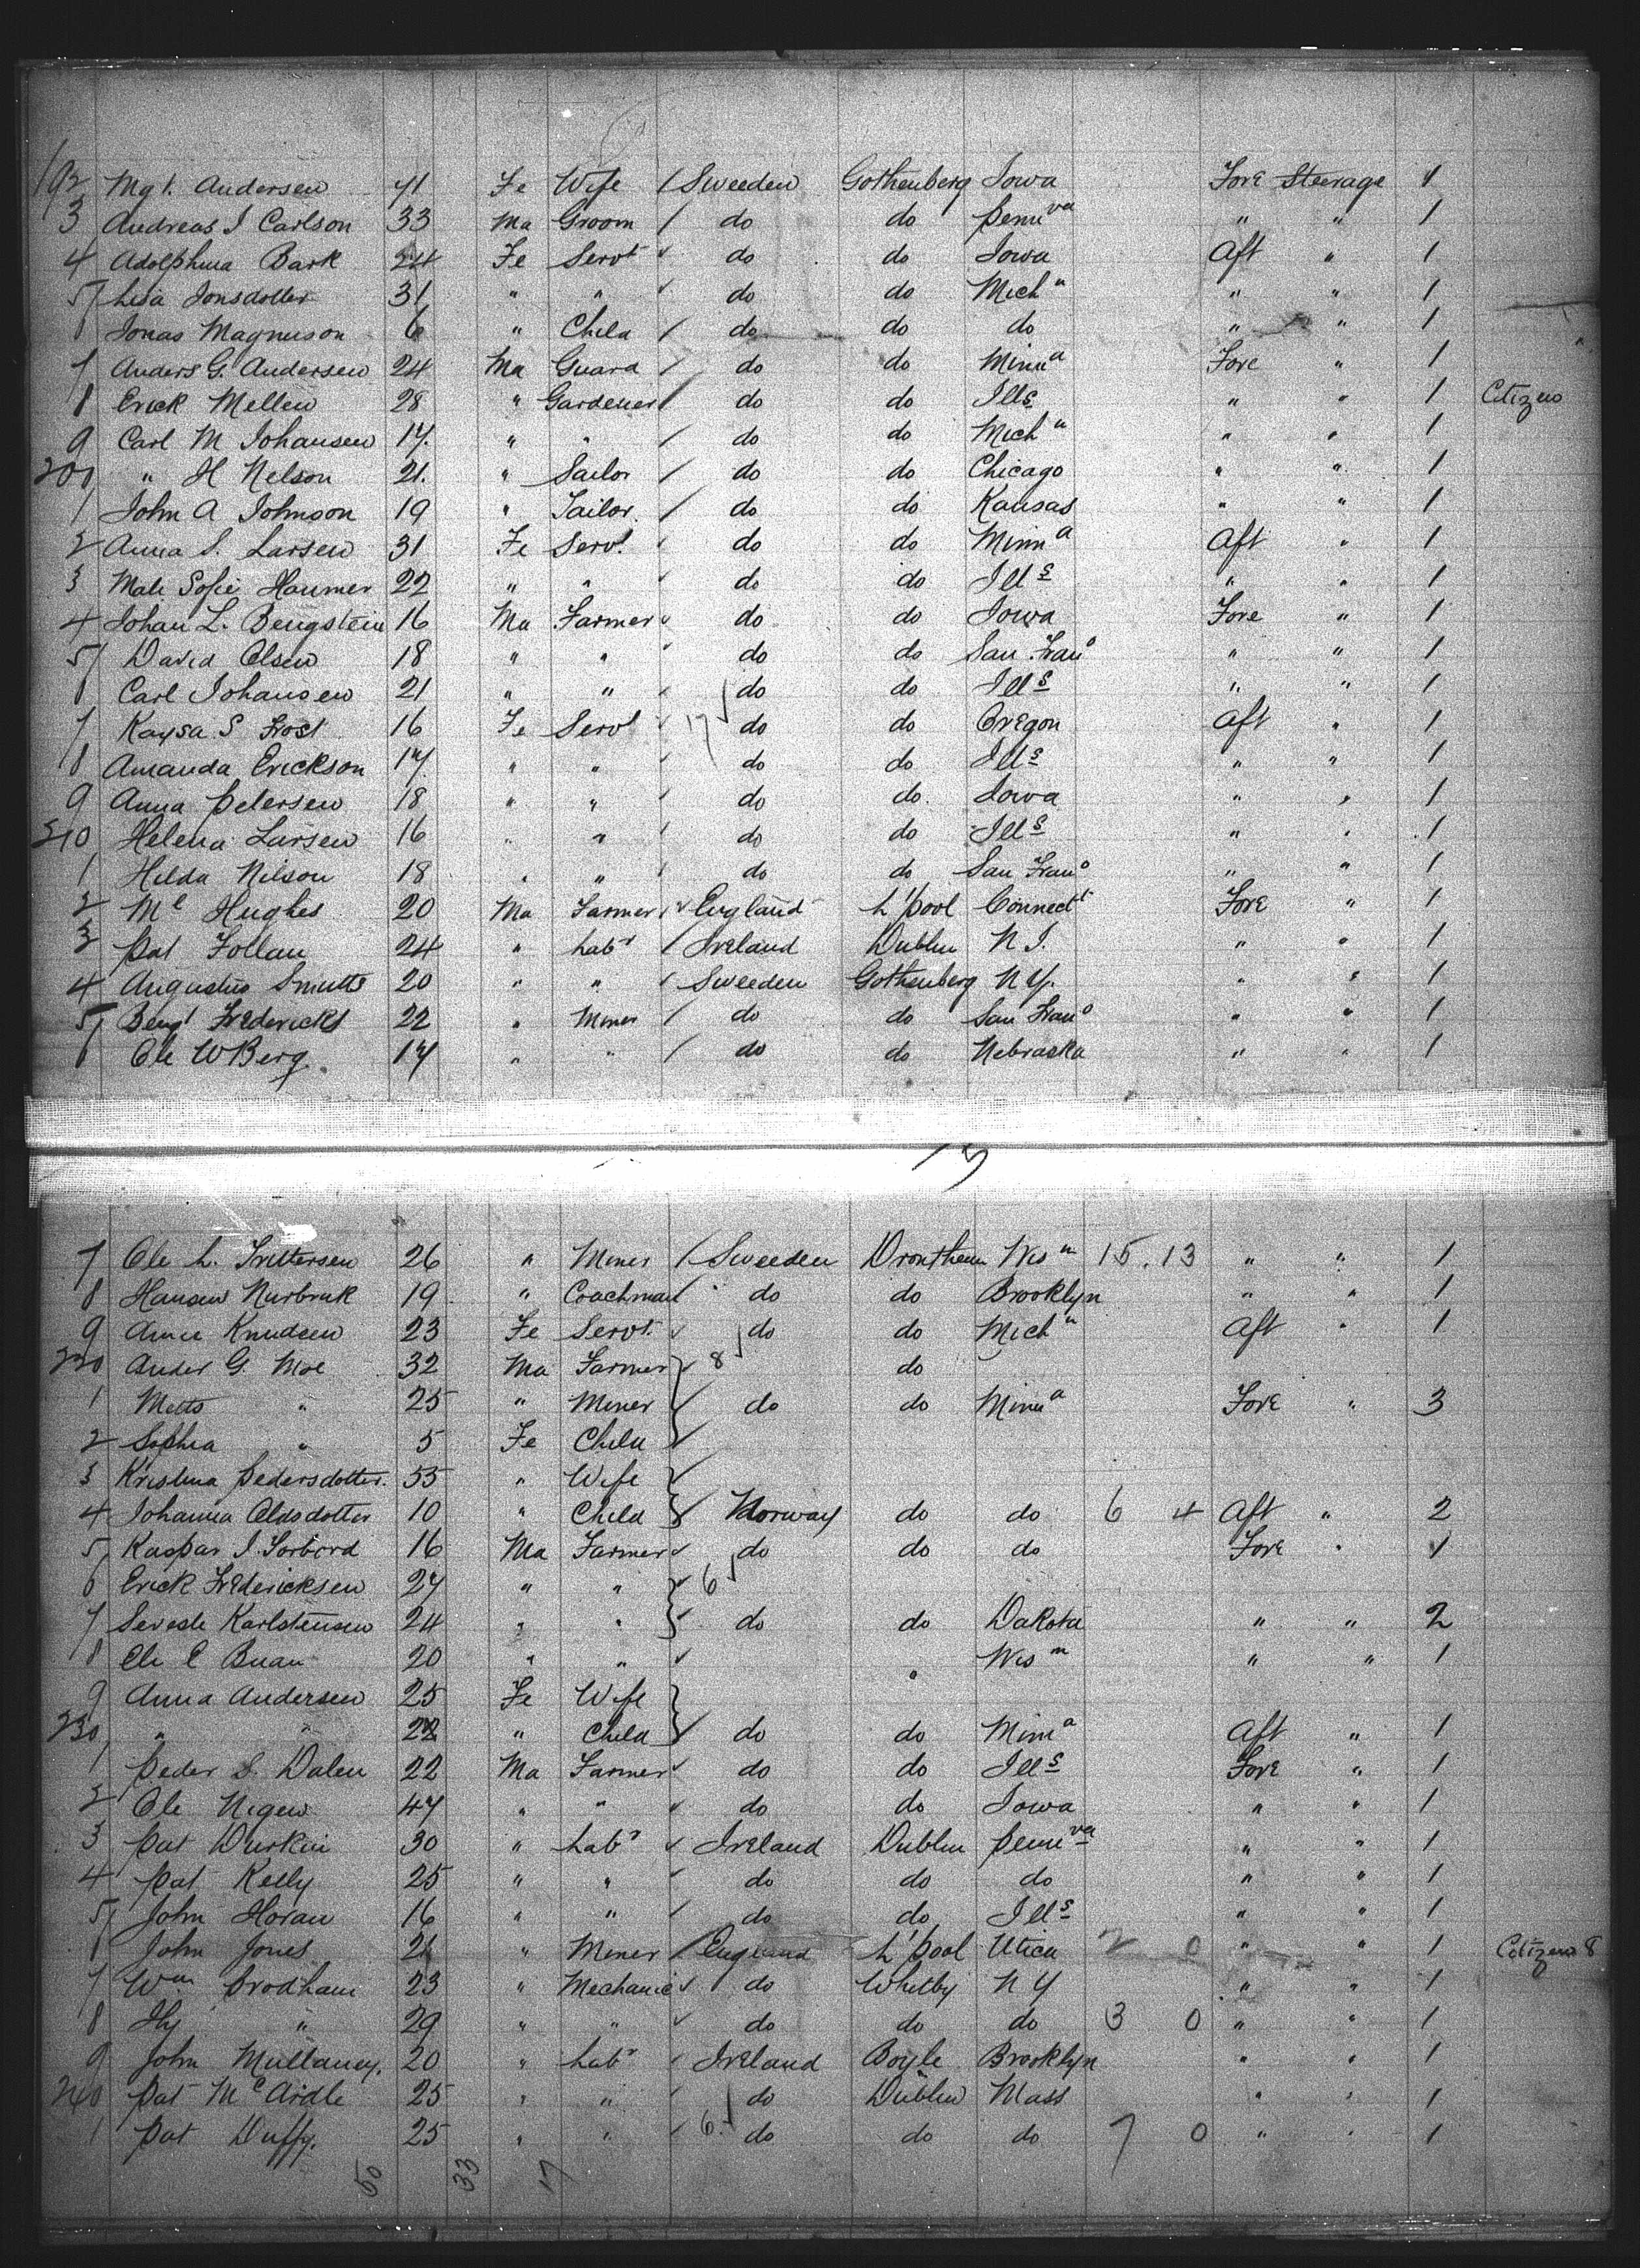 192 Mgt. Andersen 41 Fe Wife / Sweeden Gothenberg Iowa Fore Steerage 1
3 Andreas J Carlson 33 Ma Groom / do do Penn va " " 1
4 Adolphina Bark 24 Fe Servt do do Iowa Aft " 1
5 Lisa Jonsdotter 31 " " do do Mich n " " 1
6 Jonas Magnuson 6 " Child / do do do " " 1
7 Anders G. Andersen 24 Ma Guard / do do Minn a Fore " 1
8 Erick Mellen 28 " Gardener / do do Ills " " 1 Citizen
9 Carl M Johansen 17 " " / do do Mich n " " 1
200 " H Nelson 21 " Sailor / do do Chicago " " 1
1 John A Johnson 19 " Tailor / do do Kansas " " 1
2 Anna S. Larsen 31 Fe Servt do do Minn a Aft " 1
3 Male Sofie Haumer 22 " " do do Ills " " 1
4 Johan L. Bengstein 16 Ma Farmer do do Iowa Fore " 1
5 David Olsen 18 " " do do San Frano " " 1
6 Carl Johansen 21 " " do do Ills " " 1
7 Kaysa S Frost 16 Fe Servt 17 do do Oregon Aft " 1
8 Amanda Erickson 17 " " do do Ills " " 1
9 Anna Petersen 18 " " do do Iowa " " 1
210 Helena Larsen 16 " " do do Ills " " 1
1 Hilda Nilson 18 " " do do San Frano " " 1
2 Mc Hughes 20 Ma Farmer England L'pool Connectt Fore " 1
3 Pat Follan 24 " Labr / Ireland Dublin N J. " " 1
4 Augustus Smutts 20 " " / Sweeden Gothenberg N Y. " " 1
5 Bengt Fredericks 22 " Miner / do do San Frano " " 1
6 Ole W Berg 17 " " / do do Nebraska " " 1
15
7 Ole L. Frittersen 26 " Miner / Sweeden Drontheim Wis n 15.13 " " 1
8 Hansen Nurbruk 19 " Coachman do do Brooklyn " " 1
9 Anne Knudsen 23 Fe Servt. do do Mich n Aft " 1
220 Ander G. Moe 32 Ma Farmer 8 do
1 Metts " 25 " Miner do do Minn a Fore " 3
2 Sophia " 5 Fe Child
3 Kristina Pedersdotter. 55 " Wife
4 Johanna Oldsdotter 10 " Child Norway do do 6 4 Aft " 2
5 Kaspar J. Sorbord 16 Ma Farmer do do do Fore " 1
6 Erick Fredericksen 27 " " 6
7 Sevede Karlstensen 24 " " do do Dakota " " 2
8 Ole E Buan 20 " " " Wis n " " 1
9 Anna Andersen 25 Fe Wife
230 " " 22 " Child do do Minn a Aft " 1
1 Peder S. Dalen 22 Ma Farmer do do Ills Fore " 1
2 Ole Nigen 47 " " do do Iowa " " 1
3 Pat Durkin 30 " Labr Ireland Dublin Penn va " " 1
4 Pat Kelly 25 " " do do do " " 1
5 John Horan 16 " " do do Ills " " 1
6 John Jones 21 " Miner / England L'pool Utica 2 0 " " 1 Citizen 8
7 Wm Prodham 23 " Mechanic do Whitby N Y " " 1
8 Hy " 29 " " do do do 3 0 " " 1
9 John Mullaney. 20 " Labr Ireland Boyle Brooklyn " " 1
240 Pat McArdle 25 " " do Dublin Mass " " 1
1 Pat Duffy. 25 " " 6 do do do 7 0 " " 1
50 33 17